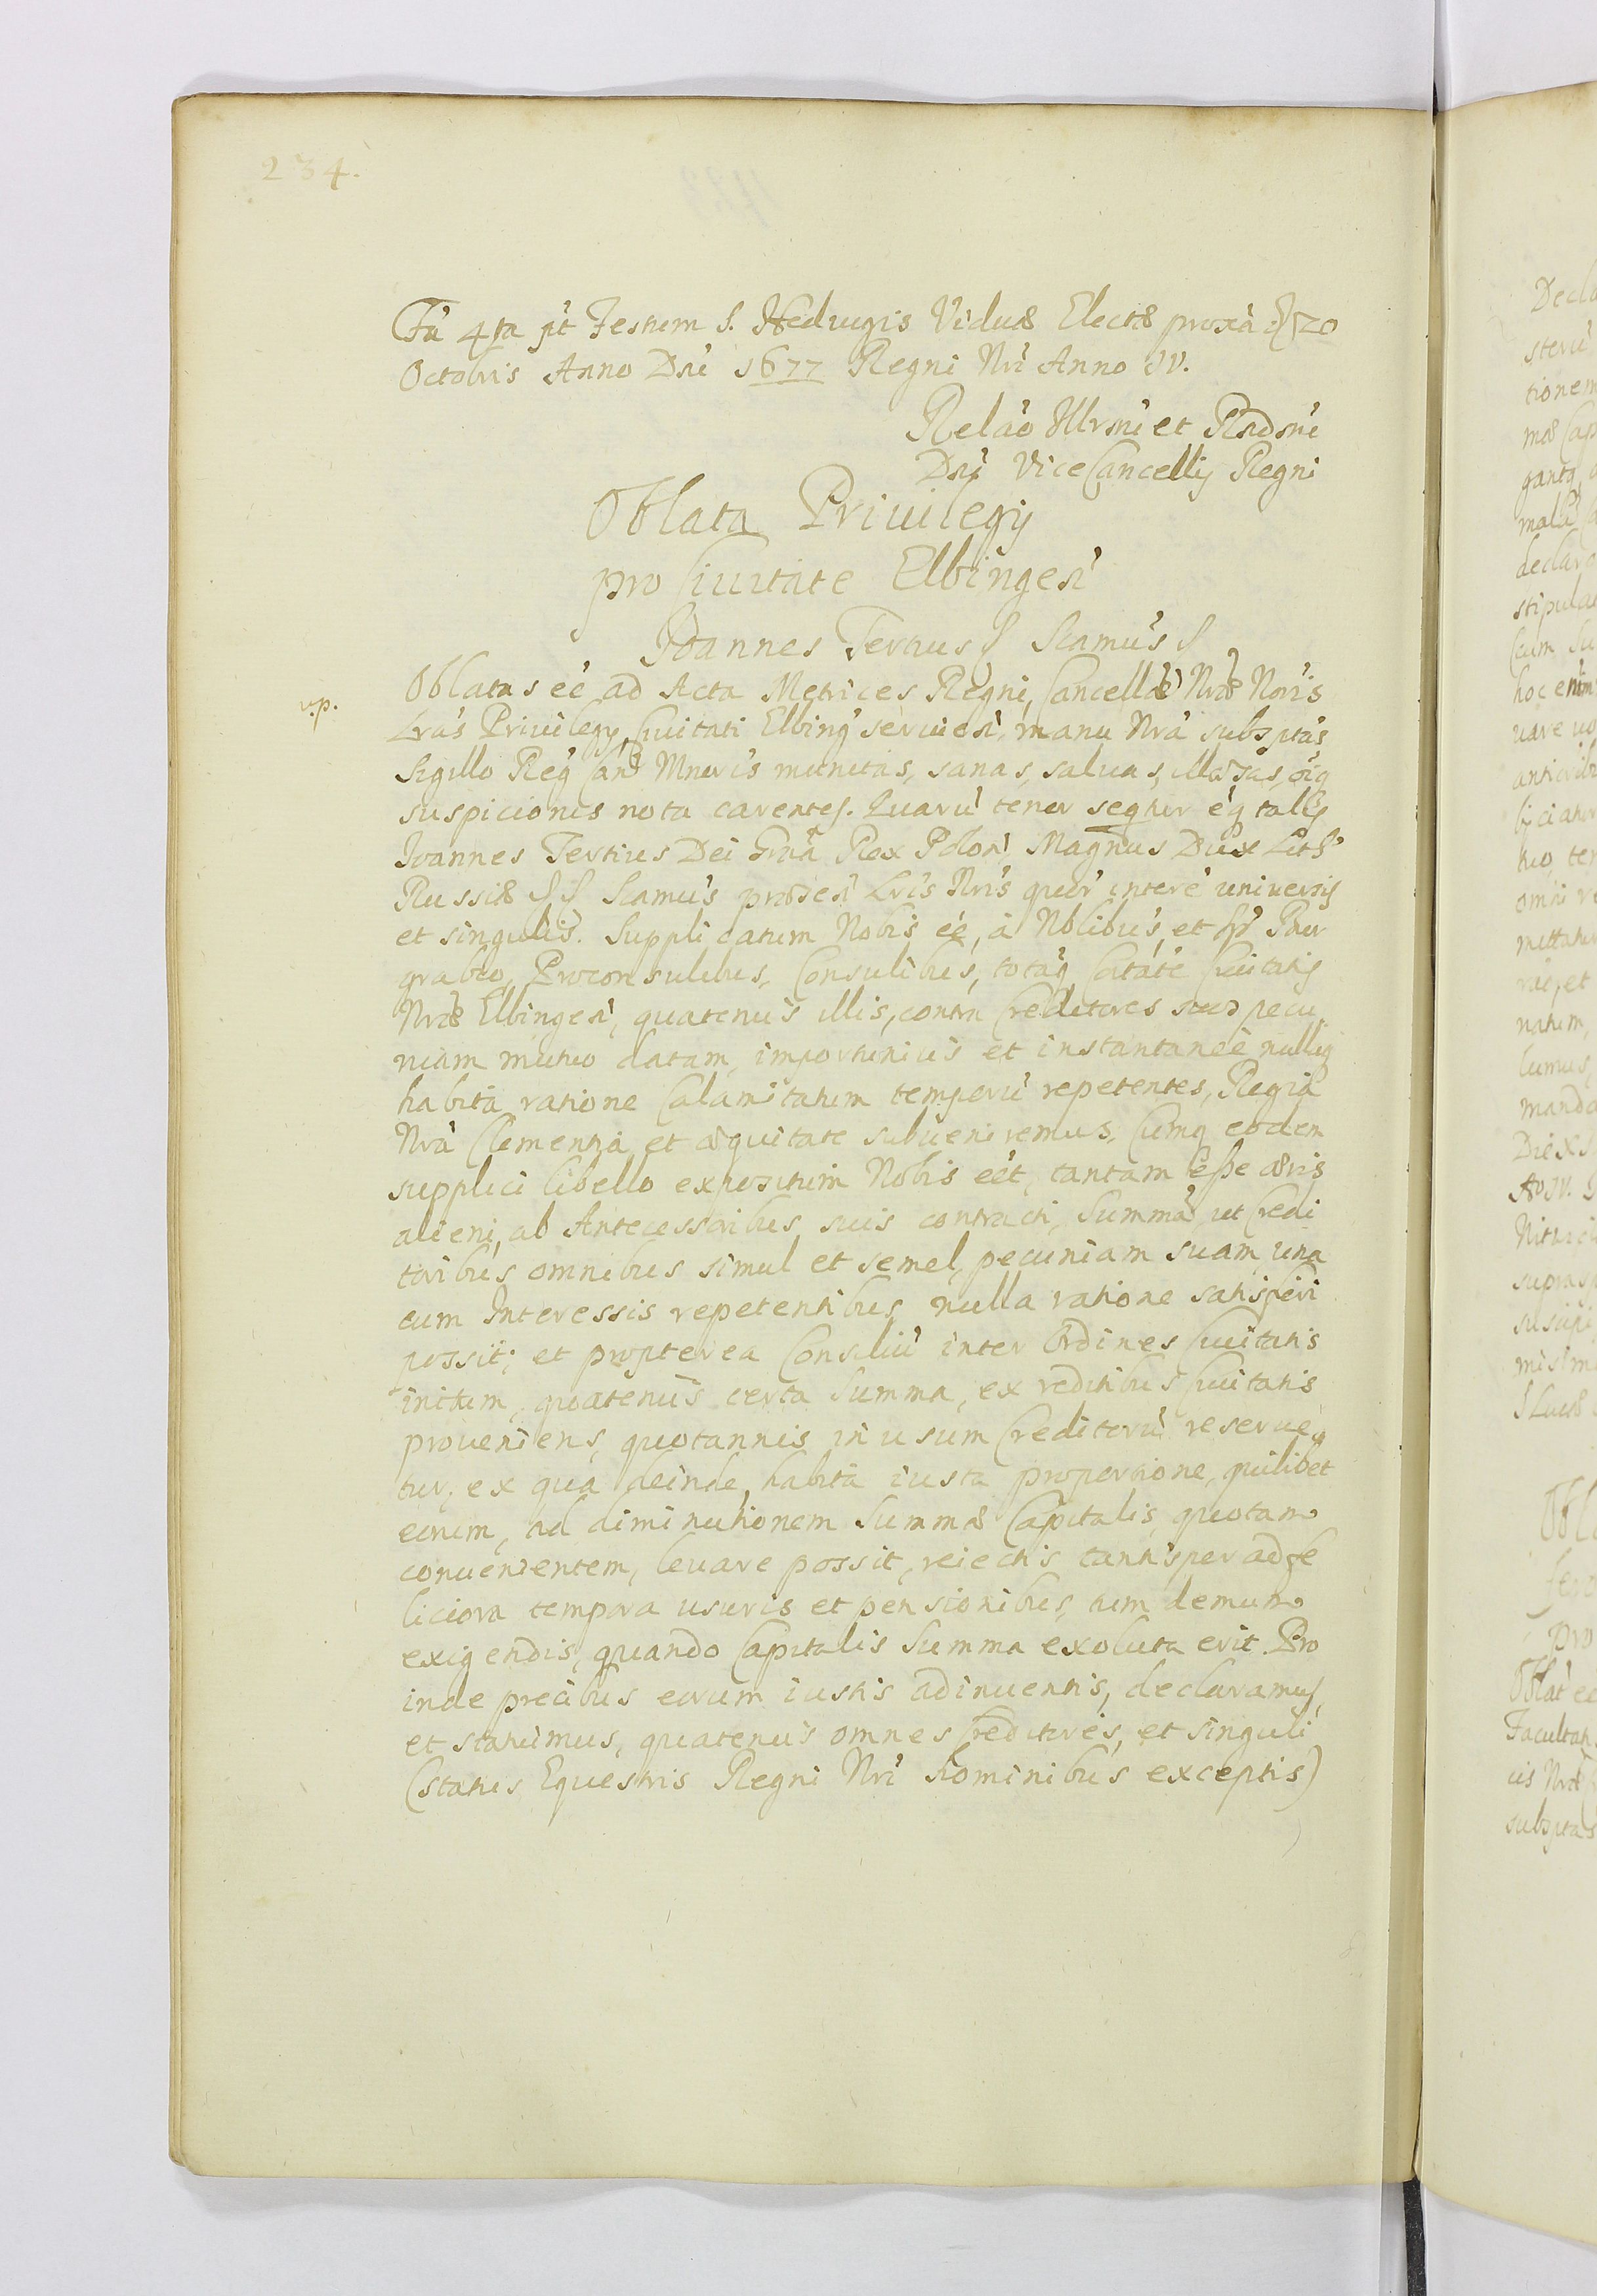 234.
Fa 4ta pt Festum S. Hedvigis Viduæ Electæ proxa 20
Octobris Anno Dni 1677 Regni Nri Anno IV.
Relao Illrsmi et Rndsmi
Dni ViceCancellij Regni
Oblata Priuilegij
pro Ciuitate Elbingen
Joannes Tertius Scamus
v.p.
Oblatas eé ad Acta Metrices Regni, Cancellæ Nræ Noris
Lras Priuilegij, Ciuitati Elbing seruien, manu Nra subsptas
Sigillo Reg Can Mnoris munitas, sanas, saluas, illæsas, oiq
suspicionis nota carentes. Quaru tenor seqtur éq talis
Joannes Tertius Dei Gratia Rex Polon Magnus Dux Lith
Russiæ Scamus præsen Lris Nris quor intere universis
et singulis. Supplicatum Nobis eé, à Nolibus, et Bur
grabio, Proconsulibus, Consulibus, totaq Cotate Ciuitatis
Nræ Elbingen, quatenus illis, contra Creditores suos pecu
niam mutuo datam, importunius et instantanee nullaq
habita ratione Calamitatum temporu repetentes, Regia
Nra Clementia et æquitate subueniremus, Cumq eodem
supplici libello expositum Nobis eét, tantam eße æris
alieni, ab Antecessoribus suis contracti, Summa, ut Credi
toribus omnibus simul et semel, pecuniam suam, una
cum Interessis repetentibus, nulla ratione satisfieri
possit; et propterea Consiliu inter Ordines Ciuitatis
initum, quatenus certa Summa, ex reditibus Ciuitatis
proueniens, quotannis in usum Creditoru reserue
tur, ex qua deinde, habita iusta proportione, quilibet
eorum, ad diminutionem Summæ Capitalis, quotam
conuenientem, leuare possit, reiectis tantisper ad fe
liciora tempora usuris et pensionibus, tum demum
exigendis, quando Capitalis Summa exoluta erit. Pro
inde precibus eorum iustis adinuentis, declaramus,
et statuimus, quatenus omnes Creditores, et singuli
(status Equestris Regni Nri hominibus exceptis)